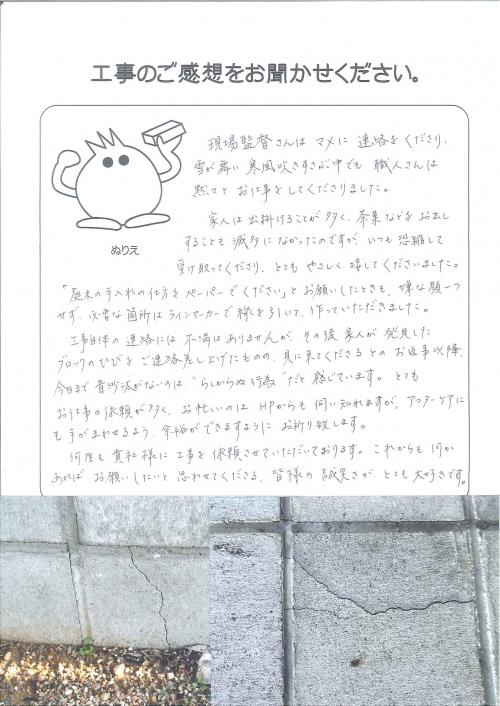 工事のご感想をお聞かせください。
現場監督さんは マメに 連絡をくださり、
雪が舞い 寒風吹きすさぶ中でも 職人さんは
黙々と お仕事をしてくださりました。
家人は出掛けることが多く、茶菓などをお出し
することも 滅多になかったのですが、いつも恐縮して
受け取ってくださり、とても やさしく 接してくださいました。
ぬりえ
「庭木の手入れの仕方をペーパーでください」とお願いしたときも、嫌な顔一つ
せず、必要な箇所はラインマーカーで線を引いて、作っていただきました。
工事自体の連絡には 不満はありませんが、その後 家人が 発見した
ブロックのひびを ご連絡差し上げたものの、見に来てくださるとの お返事以降、
今日まで 音沙汰がないのは、"らしからぬ行為"だと 感じています。とても
お仕事の依頼が多く、お忙しいのは HPからも 伺い知れますが、アフターケアに
も手がまわせるよう、余裕ができますように お祈り致します。
何度も 貴社様に 工事を依頼させていただいております。これからも 何か
あれば お願いしたいと 思わせてくださる、皆様の 誠実さが、とても 大好きです。